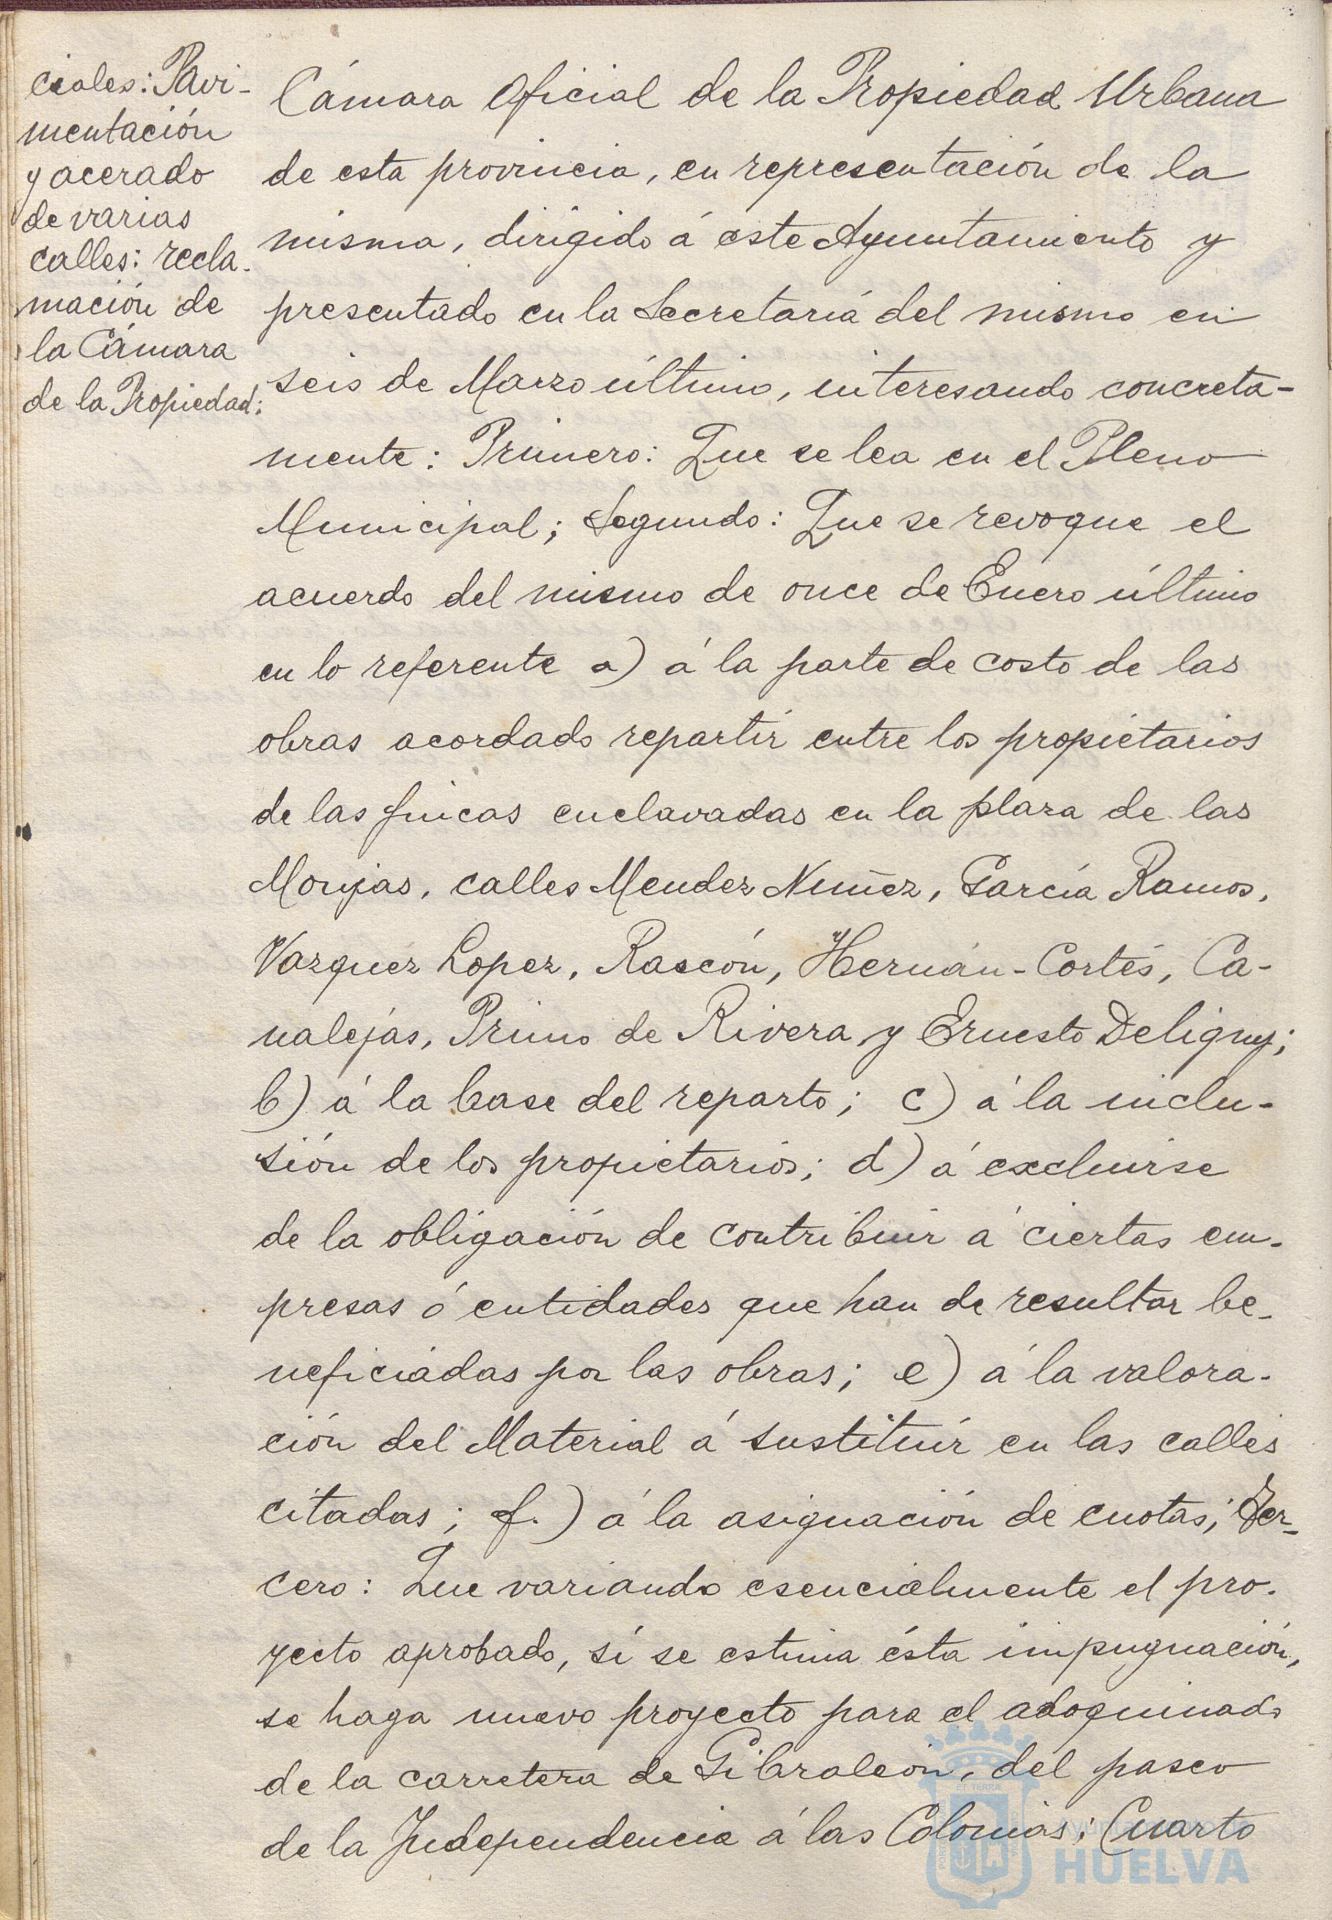 ciales: Pavi-
mentación
y acerado
de varias
calles: recla-
mación de
la Cámara
de la Propiedad:
Cámara Oficial de la Propiedad Urbana
de esta provincia, en representación de la
misma, dirigido á este Ayuntamiento y
presentado en la Secretaría del mismo en
seis de Marzo último, interesando concreta-
mente: Primero: Que se lea en el Pleno
Municipal; Segundo: Que se revoque el
acuerdo del mismo de once de Enero último
en lo referente a) á la parte de costo de las
obras acordado repartir entre los propietarios
de las fincas enclavadas en la plaza de las
Monjas, calles Mendez Nuñez, García Ramos,
Vazquez Lopez, Rascón, Hernán-Cortés, Ca-
nalejas, Primo de Rivera y Ernesto Deligny;
b) á la base del reparto; c) á la inclu-
sión de los propietarios; d) á excluirse
de la obligación de contribuir á ciertas em-
presas ó entidades que han de resultar be-
neficiadas por las obras; e) á la valora-
ción del Material á sustituír en las calles
citadas; f.) á la asignación de cuotas; Ter-
cero: Que variando esencialmente el pro-
yecto aprobado, sí se estima ésta impugnación,
se haga nuevo proyecto para el adoquinado
de la carretera de Gibraleón, del paseo
de la Independencia á las Colonias: Cuarto
Ayuntamiento de
HUELVA